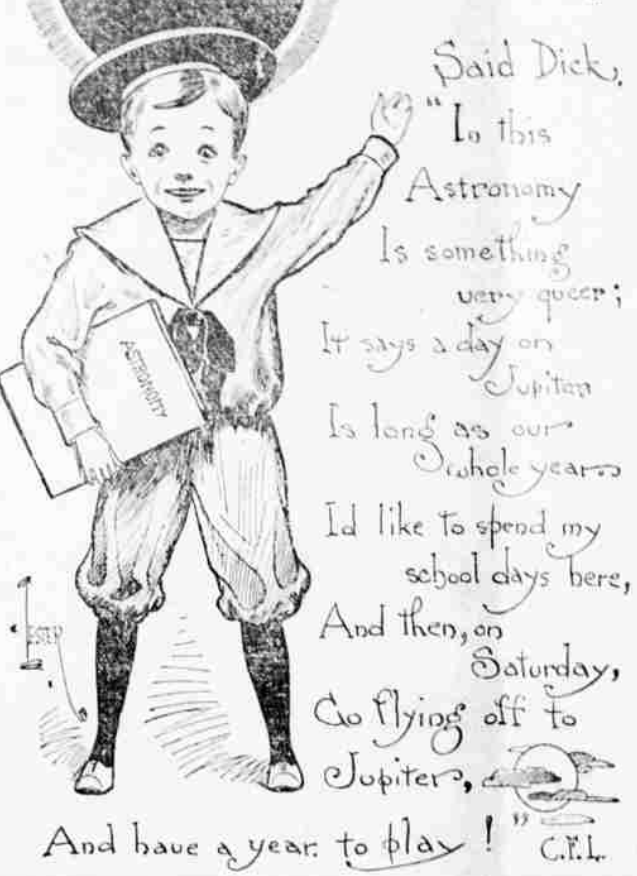 Said Dick,
"In this
Astronomy
Is something
very queer;
It says a day on
Jupiter
Is long as our
whole year
I'd like to spend my
school days here,
And then, on
Saturday,
Go flying off to
Jupiter,
And have a year to play!"
C.F.L.
ASTRONOMY